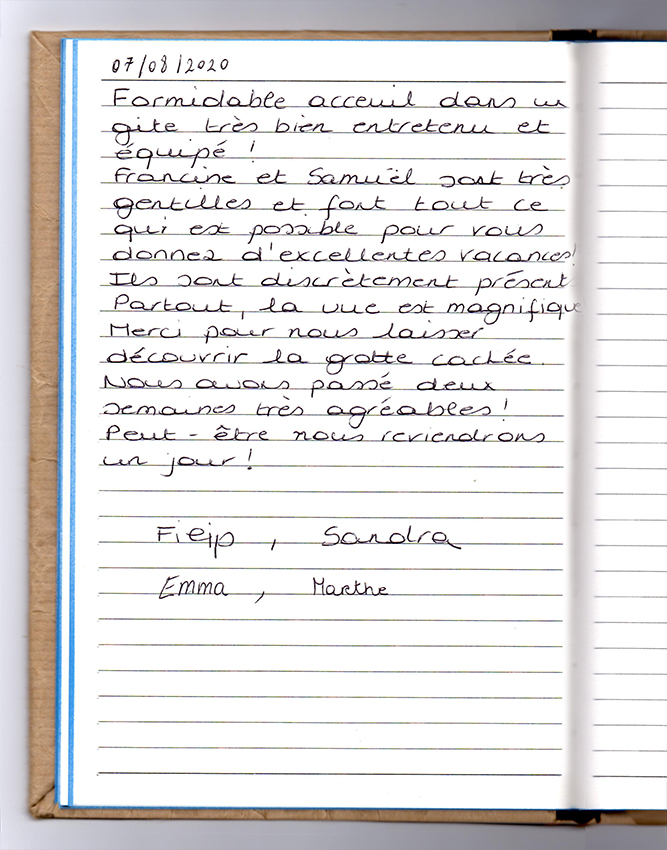 07/08/2020
Formidable acceuil dans un
gite très bien entretenu et
équipé !
Francine et Samuël sont très
gentilles et font tout ce
qui est possible pour vous
donnez d'excellentes vacances!
Ils sont discrètement présent
Partout, la vue est magnifique
Merci pour nous laisser
découvrir la grotte cachée.
Nous avons passé deux
semaines très agréables!
Peut-être nous reviendrons
un jour!
, Sandra
Emma, Marthe